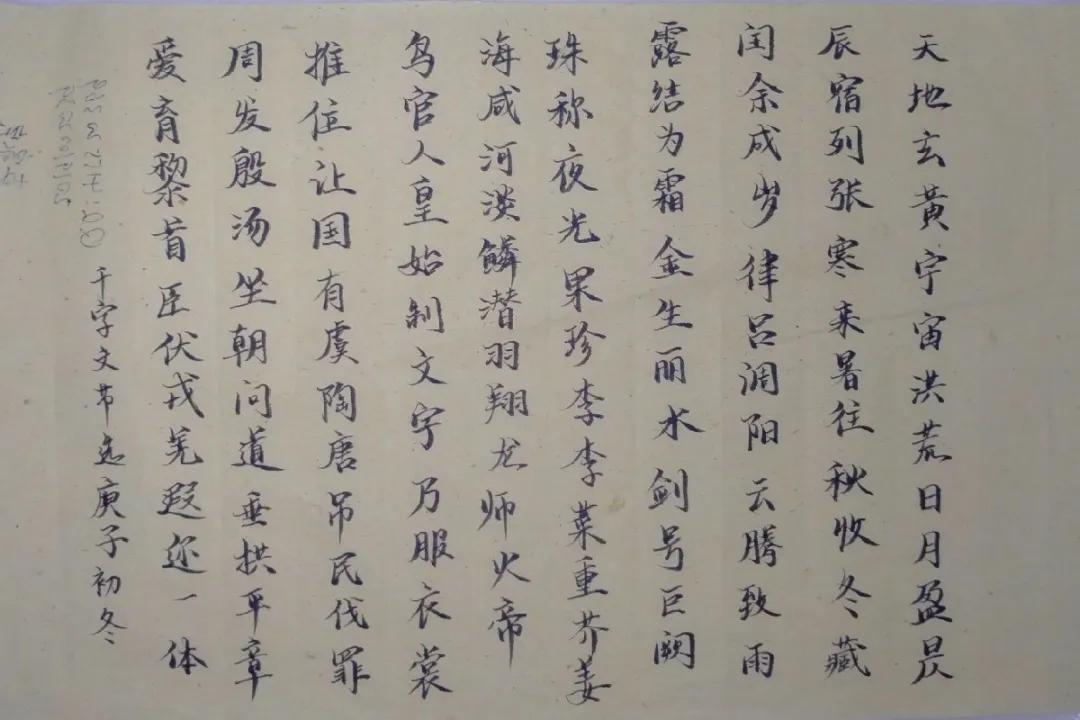 天地玄黄宇宙洪荒日月盈昃
辰宿列张寒来暑往秋收冬藏
闰余成岁律吕调阳云腾致雨
露结为霜金生丽水剑号巨阙
珠称夜光果珍李李菜重芥姜
海咸河淡鳞潜羽翔龙师火帝
鸟官人皇始制文字乃服衣裳
推位让国有虞陶唐吊民伐罪
周发殷汤坐朝问道垂拱平章
爱育黎首臣伏戎羌遐迩一体
千字文节选庚子初冬